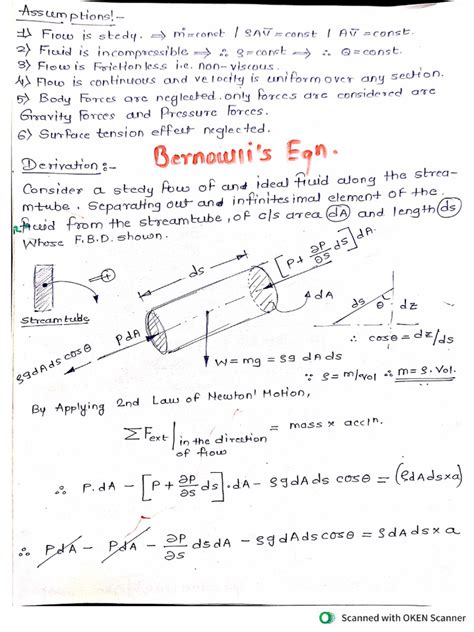 Assumptions!-
1) Flow is stedy. ⇒ ṁ=const / ρAV̄=const / AV̄=const.
2) Fluid is incompressible ⇒ ∴ ρ=const ⇒ ∴ Q=const.
3) Flow is Frictionless i.e. non-viscous.
4) Flow is continuous and velocity is uniform over any section.
5) Body Forces are neglected. only forces are considered are
Gravity Forces and Pressure Forces.
6) Surface tension effect neglected.
Bernoulli's Eqn.
Derivation:-
Consider a stedy flow of and ideal fluid along the strea-
mtube. Separating out and infinitesimal element of the
fluid from the streamtube, of c/s area dA and length ds
Whose F.B.D. shown.
ds
[P+ ∂P/∂s ds]dA
dA
Streamtube
PdA
ρgdAds cosθ
W = mg = ρg dA ds
∵ ρ = m/vol ∴ m = ρ. Vol.
ds θ dz
∴ cosθ = dz/ds
By Applying 2nd Law of Newton' Motion,
ΣFext | in the direction of flow = mass x accln.
∴ P.dA - [P + ∂P/∂s ds].dA - ρgdAds cosθ = (ρdAdsxa)
∴ PdA - PdA - ∂P/∂s dsdA - ρgdAdscosθ = ρdAds x a
Scanned with OKEN Scanner